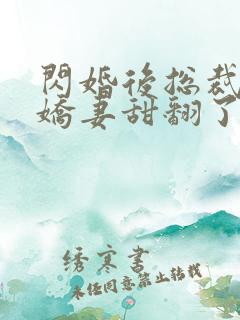 閃婚後總裁
嬌妻甜翻了
绣寒書
未经同意禁止转载